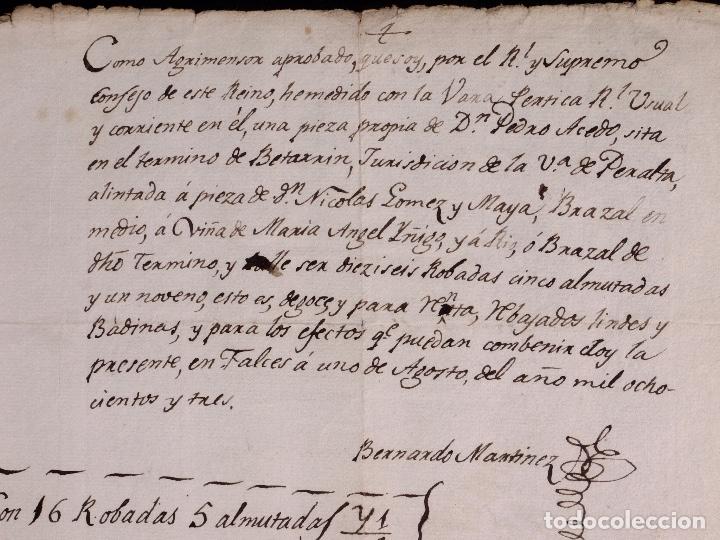 Como Agrimensor aprobado, que soy, por el R.l y Supremo
Consejo de este Reino, he medido con la Vara Pertica R.l Usual
y corriente en él, una pieza propia de D.n Pedro Acedo, sita
en el termino de Betarrin, Jurisdicion de la V.a de Peralta,
alintada á pieza de d.n Nicolas Gomez y Maya, Brazal en
medio, á Viña de Maria Angel Yñigo, y á Rio, ó Brazal de
dho Termino, y ser dieziseis Robadas cinco almutadas
y un noveno, esto es, de goce, y para Rebajados lindes y
Badinas, y para los efectos q.e puedan combenir doy la
presente, en Falces á uno de Agosto, del año mil ocho-
cientos y tres.
Bernardo Martinez
Son 16 Robadas 5 almutadas y 1
todocoleccion